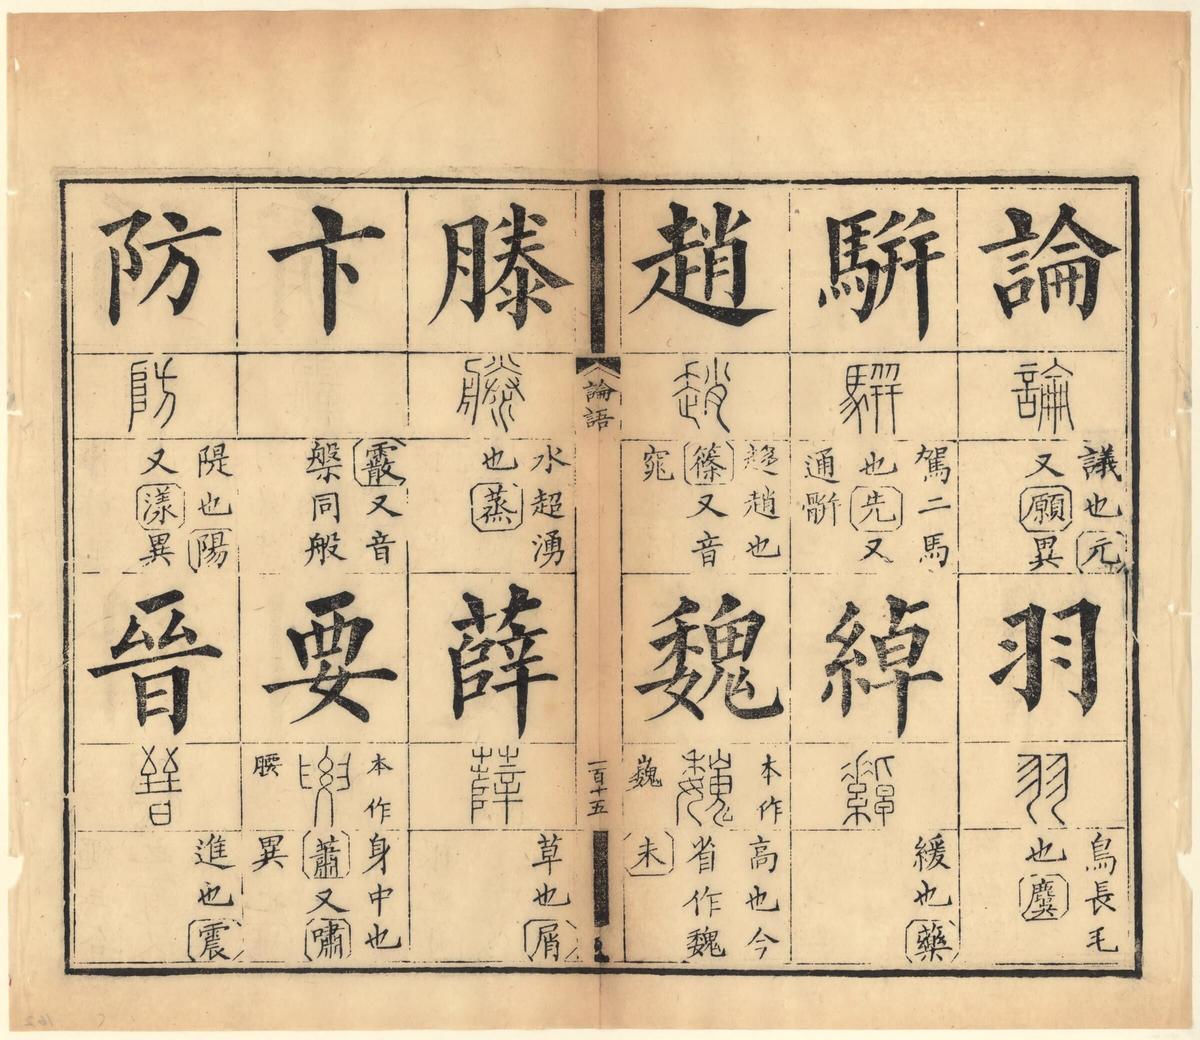 論
論
議也元
又願異
羽
羽
鳥長毛
也麌
駢
駢
駕二馬
也先又
通骿
綽
綽
緩也藥
趙
趙
趍趙也
篠又音
窕
魏
巍
本作
巍
高也今
省作魏
未
論語
一百十五
滕
滕
水超湧
也蒸
薛
薛
草也屑
卞
霰又音
槃同般
要
本作
腰
身中也
蕭又嘯
異
防
防
隄也陽
又漾異
晉
晉
進也震